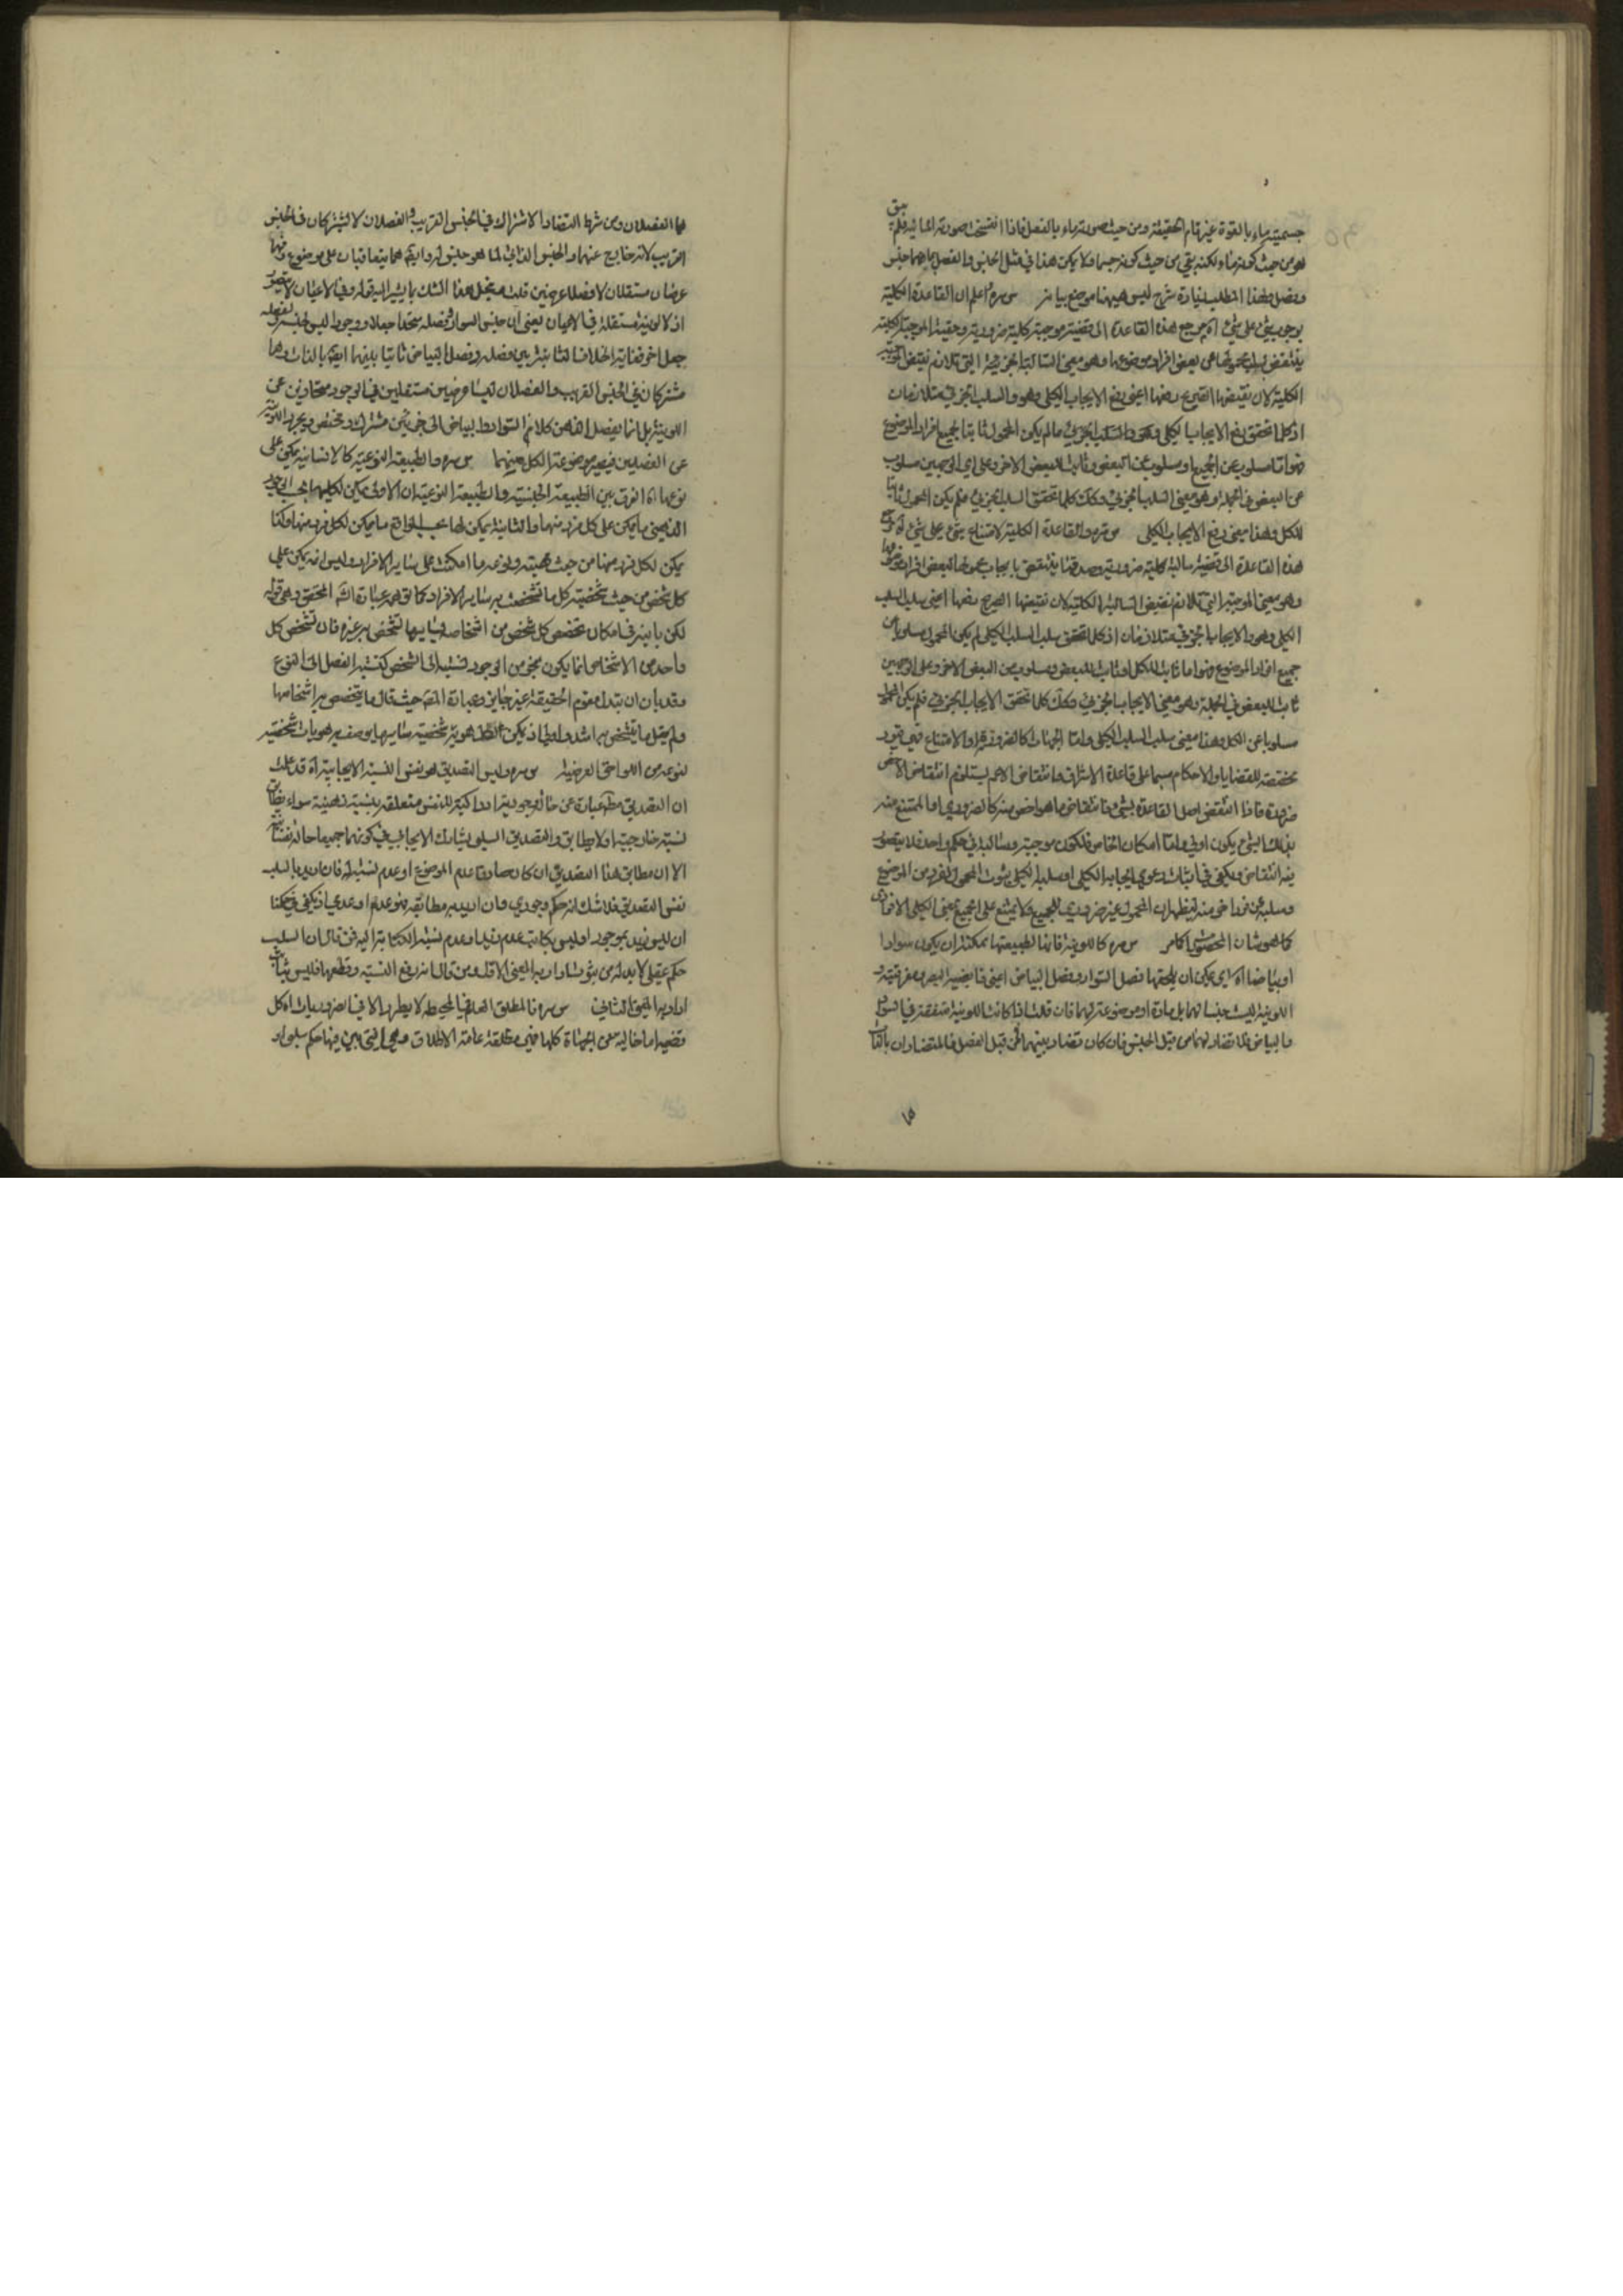 جسميته ماء بالقوة غير تام الحقيقة ومن حيث صورته ماء بالفعل فاذا انفسخت صورته المائية فلم يبق
هو من حيث كونه ماء لكنه بقى من حيث كونه جسما ولا يمكن هذا في مثل الجنس والفصل بما هما جنس
وفصل ولهذا المطلب زيادة شرح ليس هيهنا موضع بيانه س ره اعلم ان القاعدة الكلية
بوجوب شئ على شئ اه مرجع هذه القاعدة الى قضية موجبة كلية ضرورية وحقيقة الموجبة الكلية
ينتقض بسلب محمولها عن بعض افراد موضوعها وهو معنى السالبة الجزئية التي تلازم نقيض الموجبة
الكلية لان نقيضها الصريح رفعها اعني رفع الايجاب الكلى وهو والسلب الجزئي متلازمان
اذ كلما تحقق رفع الايجاب الكلى تحقق السلب الجزئي ما لم يكن المحمول ثابتا لجميع افراد الموضوع
فهو اما مسلوب عن الجميع او مسلوب عن البعض وثابت للبعض الاخر وعلى اي الوجهين مسلوب
عن البعض في الجملة وهو معنى السلب الجزئي وكذلك كلما تحقق السلب الجزئي فلم يكن المحمول ثابتا
للكل وهذا معنى رفع الايجاب الكلى س ره والقاعدة الكلية لامتناع شئ على شئ اه مرجع
هذه القاعدة الى قضية سالبة كلية ضرورية وصدقها ينتقض بايجاب محمولها لبعض افراد موضوعها
وهو معنى الموجبة التي تلازم نقيض السالبة الكلية لان نقيضها الصريح رفعها اعني سلب السلب
الكلى وهو والايجاب الجزئي متلازمان اذ كلما تحقق سلب السلب الكلى لم يكن المحمول مسلوبا عن
جميع افراد الموضوع فهو اما ثابت للكل او ثابت للبعض ومسلوب عن البعض الاخر وعلى الوجهين
ثابت للبعض في الجملة وهو معنى الايجاب الجزئي وكذلك كلما تحقق الايجاب الجزئي فلم يكن المحمول
مسلوبا عن الكل وهذا معنى سلب السلب الكلى واما الجهات كالضرورة او الامتناع فهي قيود
مخصصة للقضايا والاحكام سيما على قاعدة الاشراق وانتقاض الاعم يستلزم انتقاض الاخص
ضرورة فاذا انتقض اصل القاعدة بشئ فانتقاض ما هو اخص منه كالضروري او الممتنع منه
بذلك الشئ يكون اولى واما امكان الخاص فلكون موجبته وسالبته في حكم واحد فلا يتصور
فيه انتقاض ويكفي في اثبات دعوى ايجابه الكلى او سلبه الكلى ثبوت المحمول لفرد من الموضوع
وسلبه عن فرد اخر منه ليظهر ان المحمول غير ضروري للجميع ولا يمتنع على الجميع بمعنى الكلى الافرادى
كما هو شان المحصور كما مر س ره كاللونية فانها لطبيعتها يمكنه ان يكون سوادا
او بياضا اه اي يمكن ان يلحقها فصل السواد وفصل البياض اعني قابضية البصر ومفرقيته و
اللونية ليست جنسا لهما بل مادة او موضوعة لهما فان قلت اذا كانت اللونية متفقة في السواد
والبياض فلا تضاد لهما من قبل الجنس فان كان تضاد بينهما فمن قبل الفصل فالمتضادان بالذات
هما الفصلان ومن شرط التضاد الاشتراك في الجنس القريب والفصلان لا يشتركان في الجنس
القريب لانه خارج عنهما والجنس الذاتي لما هو جنس له وايضا هما يتعاقبان على موضوع فهما
عرضان مستقلان لا فصلا عرضين قلت ينحل هذا الشك بما يشير اليه قوله وفي الاعيان لا يتصور
اذ لا لونية مستقلة في الاعيان يعنى ان جنس السواد وفصله متحدا جعلا ووجودا ليس لجنسه ولفصله
جعل اخر فغاية الخلاف الثابتة بين فصله وفصل البياض ثابتا بينهما ايضا بالذات وهما
مشتركان في الجنس القريب والفصلان ليسا عرضيين مستقلين في الوجود مجردين عن
اللونية بل انما يفصل الذهن كلا من السواد والبياض الى جزئين مشترك ومختص ويجرد اللونية
عن الفصلين فيصير موضوعة لكل منهما س ره والطبيعة النوعية كالانسانية يمكن على
نوعها اه الفرق بين الطبيعة الجنسية والطبيعة النوعية ان الاولى يمكن لكليهما بحسب الوجود
الذهني ما يمكن على كل فرد منهما والثانية يمكن لها بحسب الواقع ما يمكن لكل فرد منها وكذا
يمكن لكل فرد منها من حيث هيته ونوعه ما امكنت على سائر الافراد وليس انه يمكن على
كل شخص من حيث شخصيته كل ما تشخصت به سائر الافراد كما توهمه عبارة الشه المحقق وهي قوله
لكن باينه في امكان تخصص كل شخص من اشخاصه لما بها تشخص به غيره فان تشخص كل
واحد من الاشخاص انما يكون بنحو من الوجود فنسبته الى الشخص كنسبة الفصل الى النوع
وقد بان ان تبدل مقوم الحقيقة غير جايز وعبارة المصه حيث قال ما يتخصص بها اشخاصها
ولم يقل ما يتشخص بها اسد واولى اذ يمكن هوية شخصية سائرها يوصف به هويات شخصية
لنوعه من اللواحق العرضية س ره وليس التصديق هو نفس النسبة الايجابية اه قد علمت
ان التصديق مطلقا عبارة عن حالة وجودية ادراكية للنفس متعلقة بنسبة ذهنية سواء يطابق
نسبة خارجية او لا يطابق والتصديق السلبي يشارك الايجابي في كونهما جميعا حالة نفسانية
الا ان مطابق هذا التصديق ان كان صادقا عدم الموضوع او عدم نسبة له فان اريد بالسلب
نفس التصديق فلا شك انه حكم وجودي وان اريد به مطابقه فهو عدم او عدمي اذ يكفي في حكمنا
ان ليس زيد بموجود او ليس بكاتب عدم زيد او عدم نسبة الكتابة اليه فمن قال ان السلب
حكم عقلي لا بد له من ثبوت اراد به المعنى الاول ومن قال انه رفع النسبة وقطعها فليس بثابت
اراد به المعنى الثاني س ره فالمطلق العام في المحيطة لا يطرد الا في الضروريات اه كل
قضية اما خالية عن الجهات كلها فهي مطلقة عامة الاطلاق وهي التي بين فيها حكم سلبي او